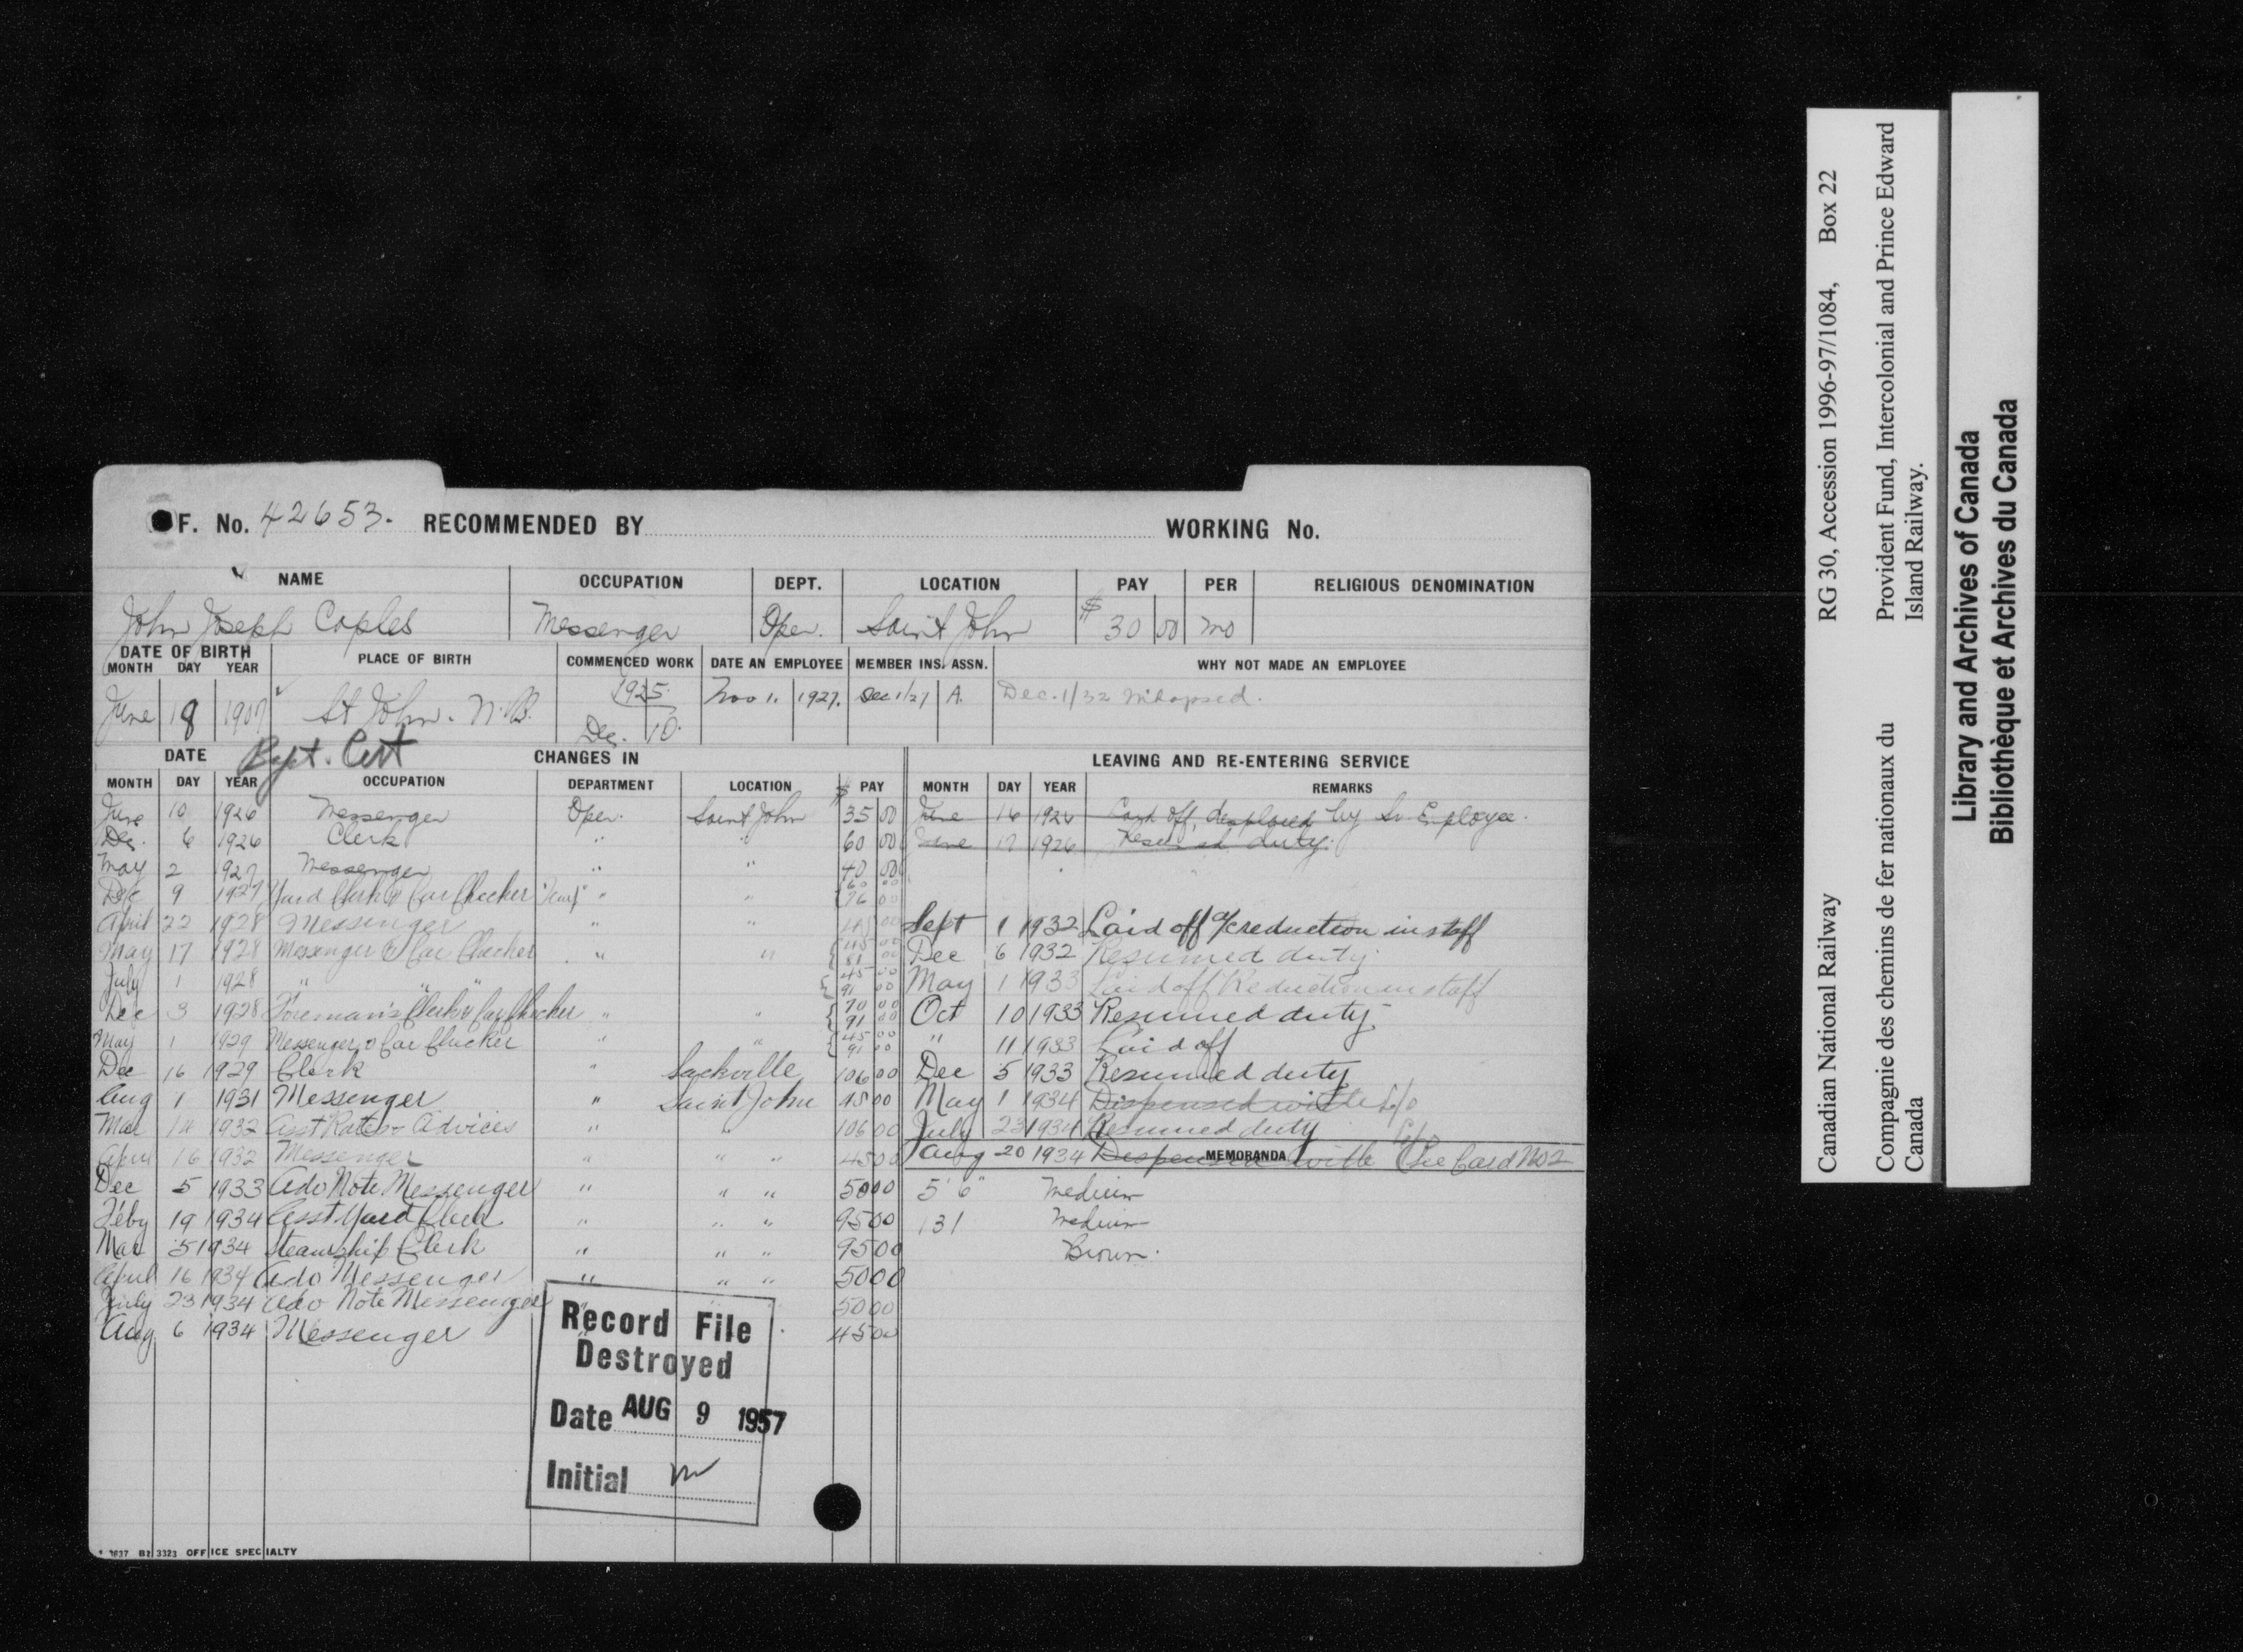 F. No. 42653. RECOMMENDED BY WORKING No.
NAME OCCUPATION DEPT. LOCATION PAY PER RELIGIOUS DENOMINATION
John Joseph Coples Messenger Oper. Saint John $ 30 00 mo
DATE OF BIRTH PLACE OF BIRTH COMMENCED WORK DATE AN EMPLOYEE MEMBER INS. ASSN. WHY NOT MADE AN EMPLOYEE
MONTH DAY YEAR
June 18 1907 St John. N.B. 1925. Dec. 10. Nov 1. 1927. Dec 1/27 A. Dec. 1/32
Bapt. Cert
DATE CHANGES IN LEAVING AND RE-ENTERING SERVICE
MONTH DAY YEAR OCCUPATION DEPARTMENT LOCATION $ PAY MONTH DAY YEAR REMARKS
June 10 1926 Messenger Oper. Saint John 35 00 June 16 1926 off, displaced by Sr Employee.
Dec. 6 1926 Clerk " " 60 00 June 17 1926 Resumed duty.
May 2 1927 Messenger " " 40 00
Dec 9 1927 Yard Clerk & Car Checker "Temp" " " 60 00 76 00
April 22 1928 Messenger " " 45 00 Sept 1 1932 Laid off a/c reduction in staff
May 17 1928 Messenger & Car Checker " " 45 00 81 00 Dec 6 1932 Resumed duty
July 1 1928 " " " 45 00 91 00 May 1 1933 Laid off Reduction in staff
Dec 3 1928 Foreman's Clerk & Car Checker " " 70 00 91 00 Oct 10 1933 Resumed duty
May 1 1929 Messenger & Car Checker " " 45 00 91 00 " 11 1933 Laid off
Dec 16 1929 Clerk " Sackville 106 00 Dec 5 1933 Resumed duty
Aug 1 1931 Messenger " Saint John 45 00 May 1 1934 Dispensed with L/o
Mar 14 1932 Asst Rates & Advices " " 106 00 July 23 1934 Resumed duty
April 16 1932 Messenger " " " 45 00 Aug 20 1934 Dispensed with L/o See Card No 2
MEMORANDA
Dec 5 1933 Ado Note Messenger " " " 50 00 5' 6" Medium
Feby 19 1934 Asst Yard Clerk " " " 95 00 131 Medium
Mar 5 1934 Steamship Clerk " " " 95 00 Brown.
April 16 1934 Ado Messenger " " " 50 00
July 23 1934 Ado Note Messenger " " 50 00
Aug 6 1934 Messenger " 45 00
Record File
Destroyed
Date AUG 9 1957
Initial
3323 OFFICE SPECIALTY
Canadian National Railway RG 30, Accession 1996-97/1084, Box 22
Compagnie des chemins de fer nationaux du Provident Fund, Intercolonial and Prince Edward
Canada Island Railway.
Library and Archives of Canada
Bibliothèque et Archives du Canada